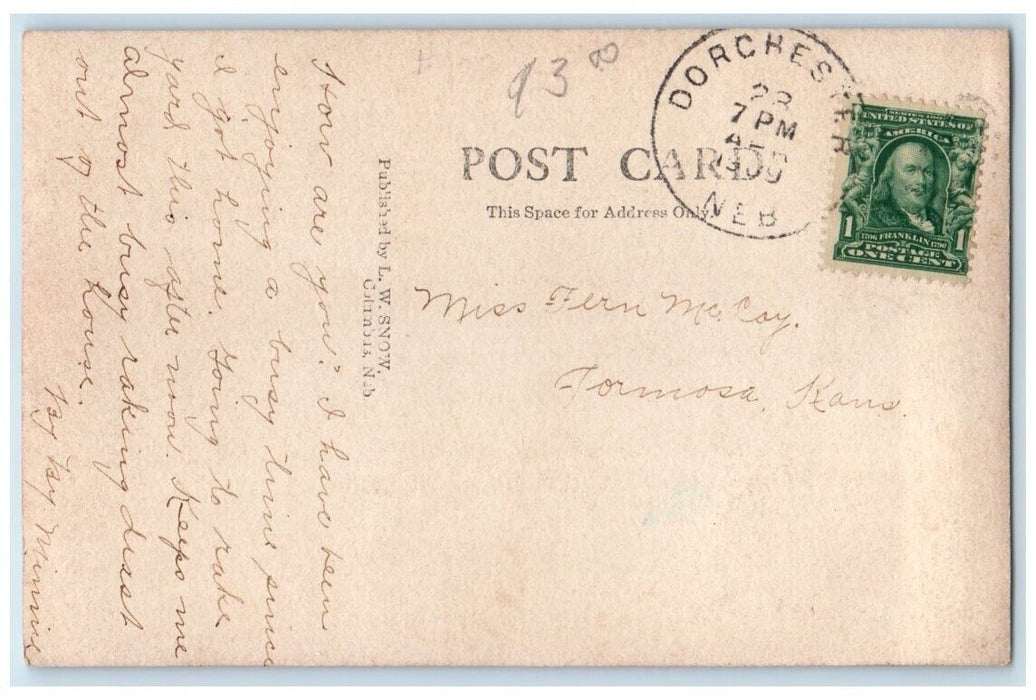 93 00
DORCHESTER
23
7 PM
NEB
SERIES 1902
UNITED STATES OF
AMERICA
1 1
1706 FRANKLIN 1790
POSTAGE
ONE CENT
POST CARD
This Space for Address Only.
Miss Fern McCoy.
Formosa, Kans.
Published by L. W. SNOW,
Columbus, Neb.
How are you? I have been
enjoying a busy time since
I got home. Going to rake
yard this after noon. Keeps me
almost busy raking dust
out of the house.
By By Minnie